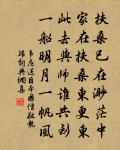 扶桑已在渺茫中
家在扶桑東更東
此去與師誰共到
一船明月一帆風
韋莊送日本國僧敬龍
歸詞典網集